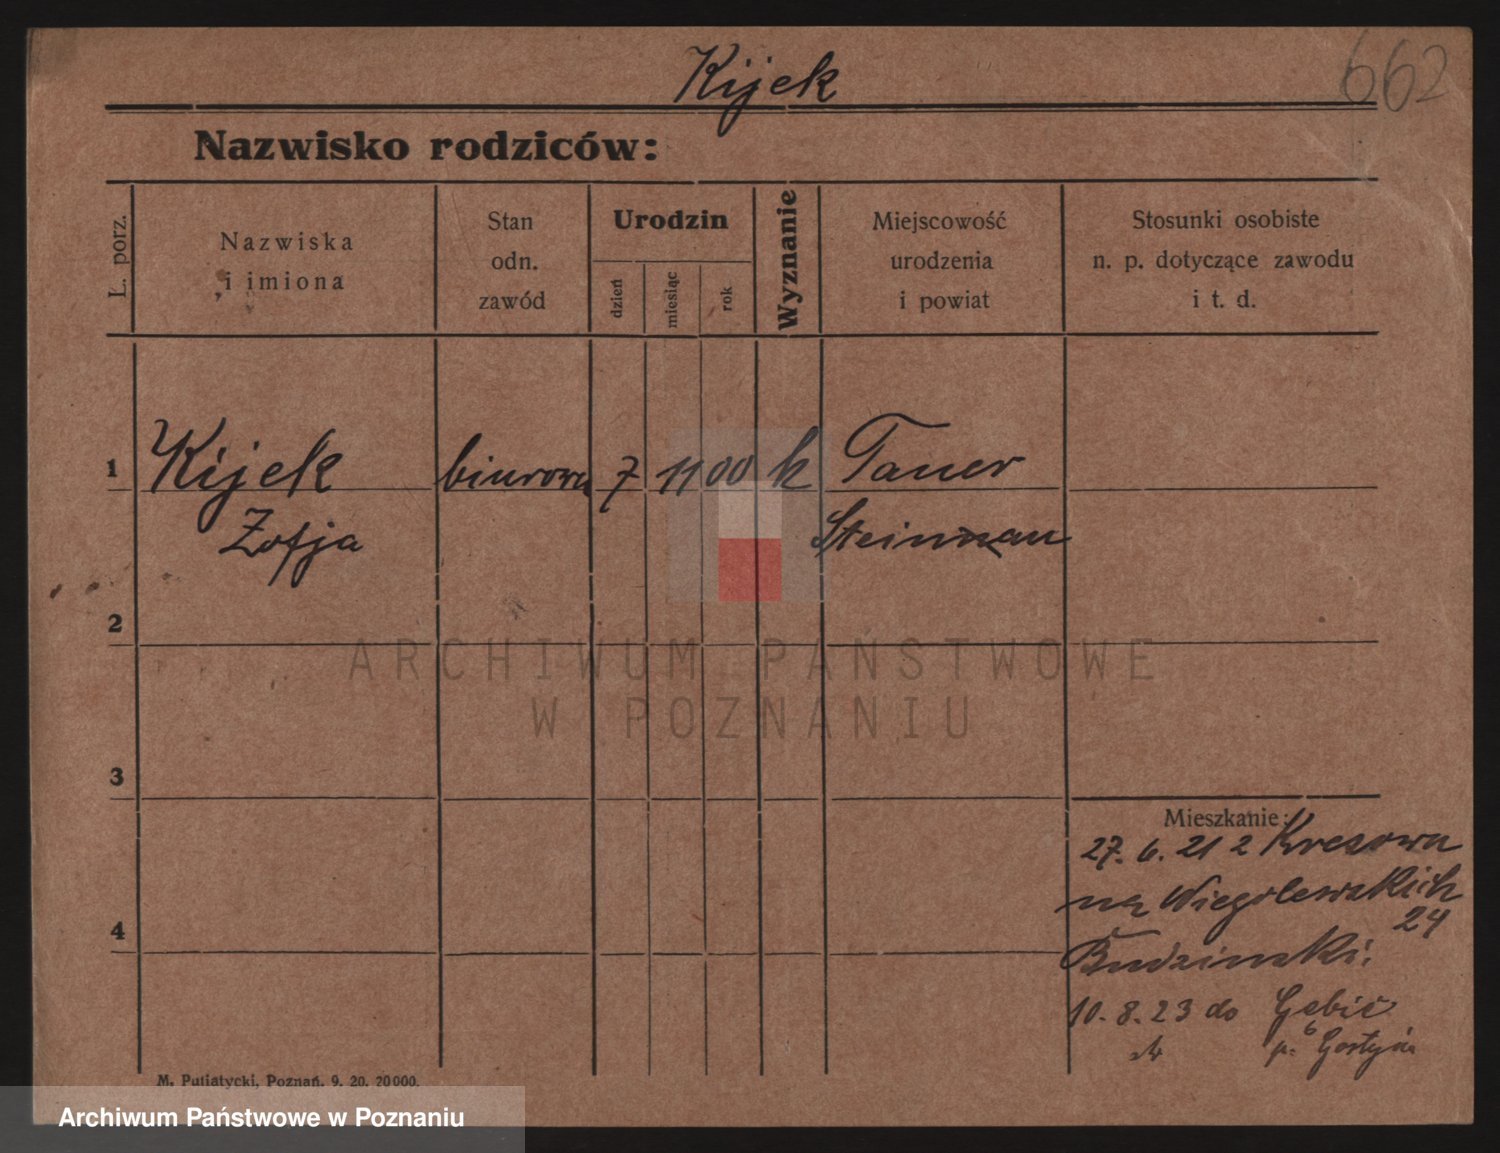 Kijek
662
Nazwisko rodziców:
L. porz.
Nazwiska
i imiona
Stan
odn.
zawód
Urodzin
dzień
miesiąc
rok
Wyznanie
Miejscowość
urodzenia
i powiat
Stosunki osobiste
n. p. dotyczące zawodu
i t. d.
1 Kijek biurowa 7 11 00 k Taner
Zofja Steinnau
2
ARCHIWUM PAŃSTWOWE
W POZNANIU
3
Mieszkanie:
27. 6. 21 z Kresowa
na Niegolewskich
24
4
Budzinski.
10. 8. 23 do
p. Gostyń
M. Putiatycki, Poznań. 9. 20. 20000.
Archiwum Państwowe w Poznaniu